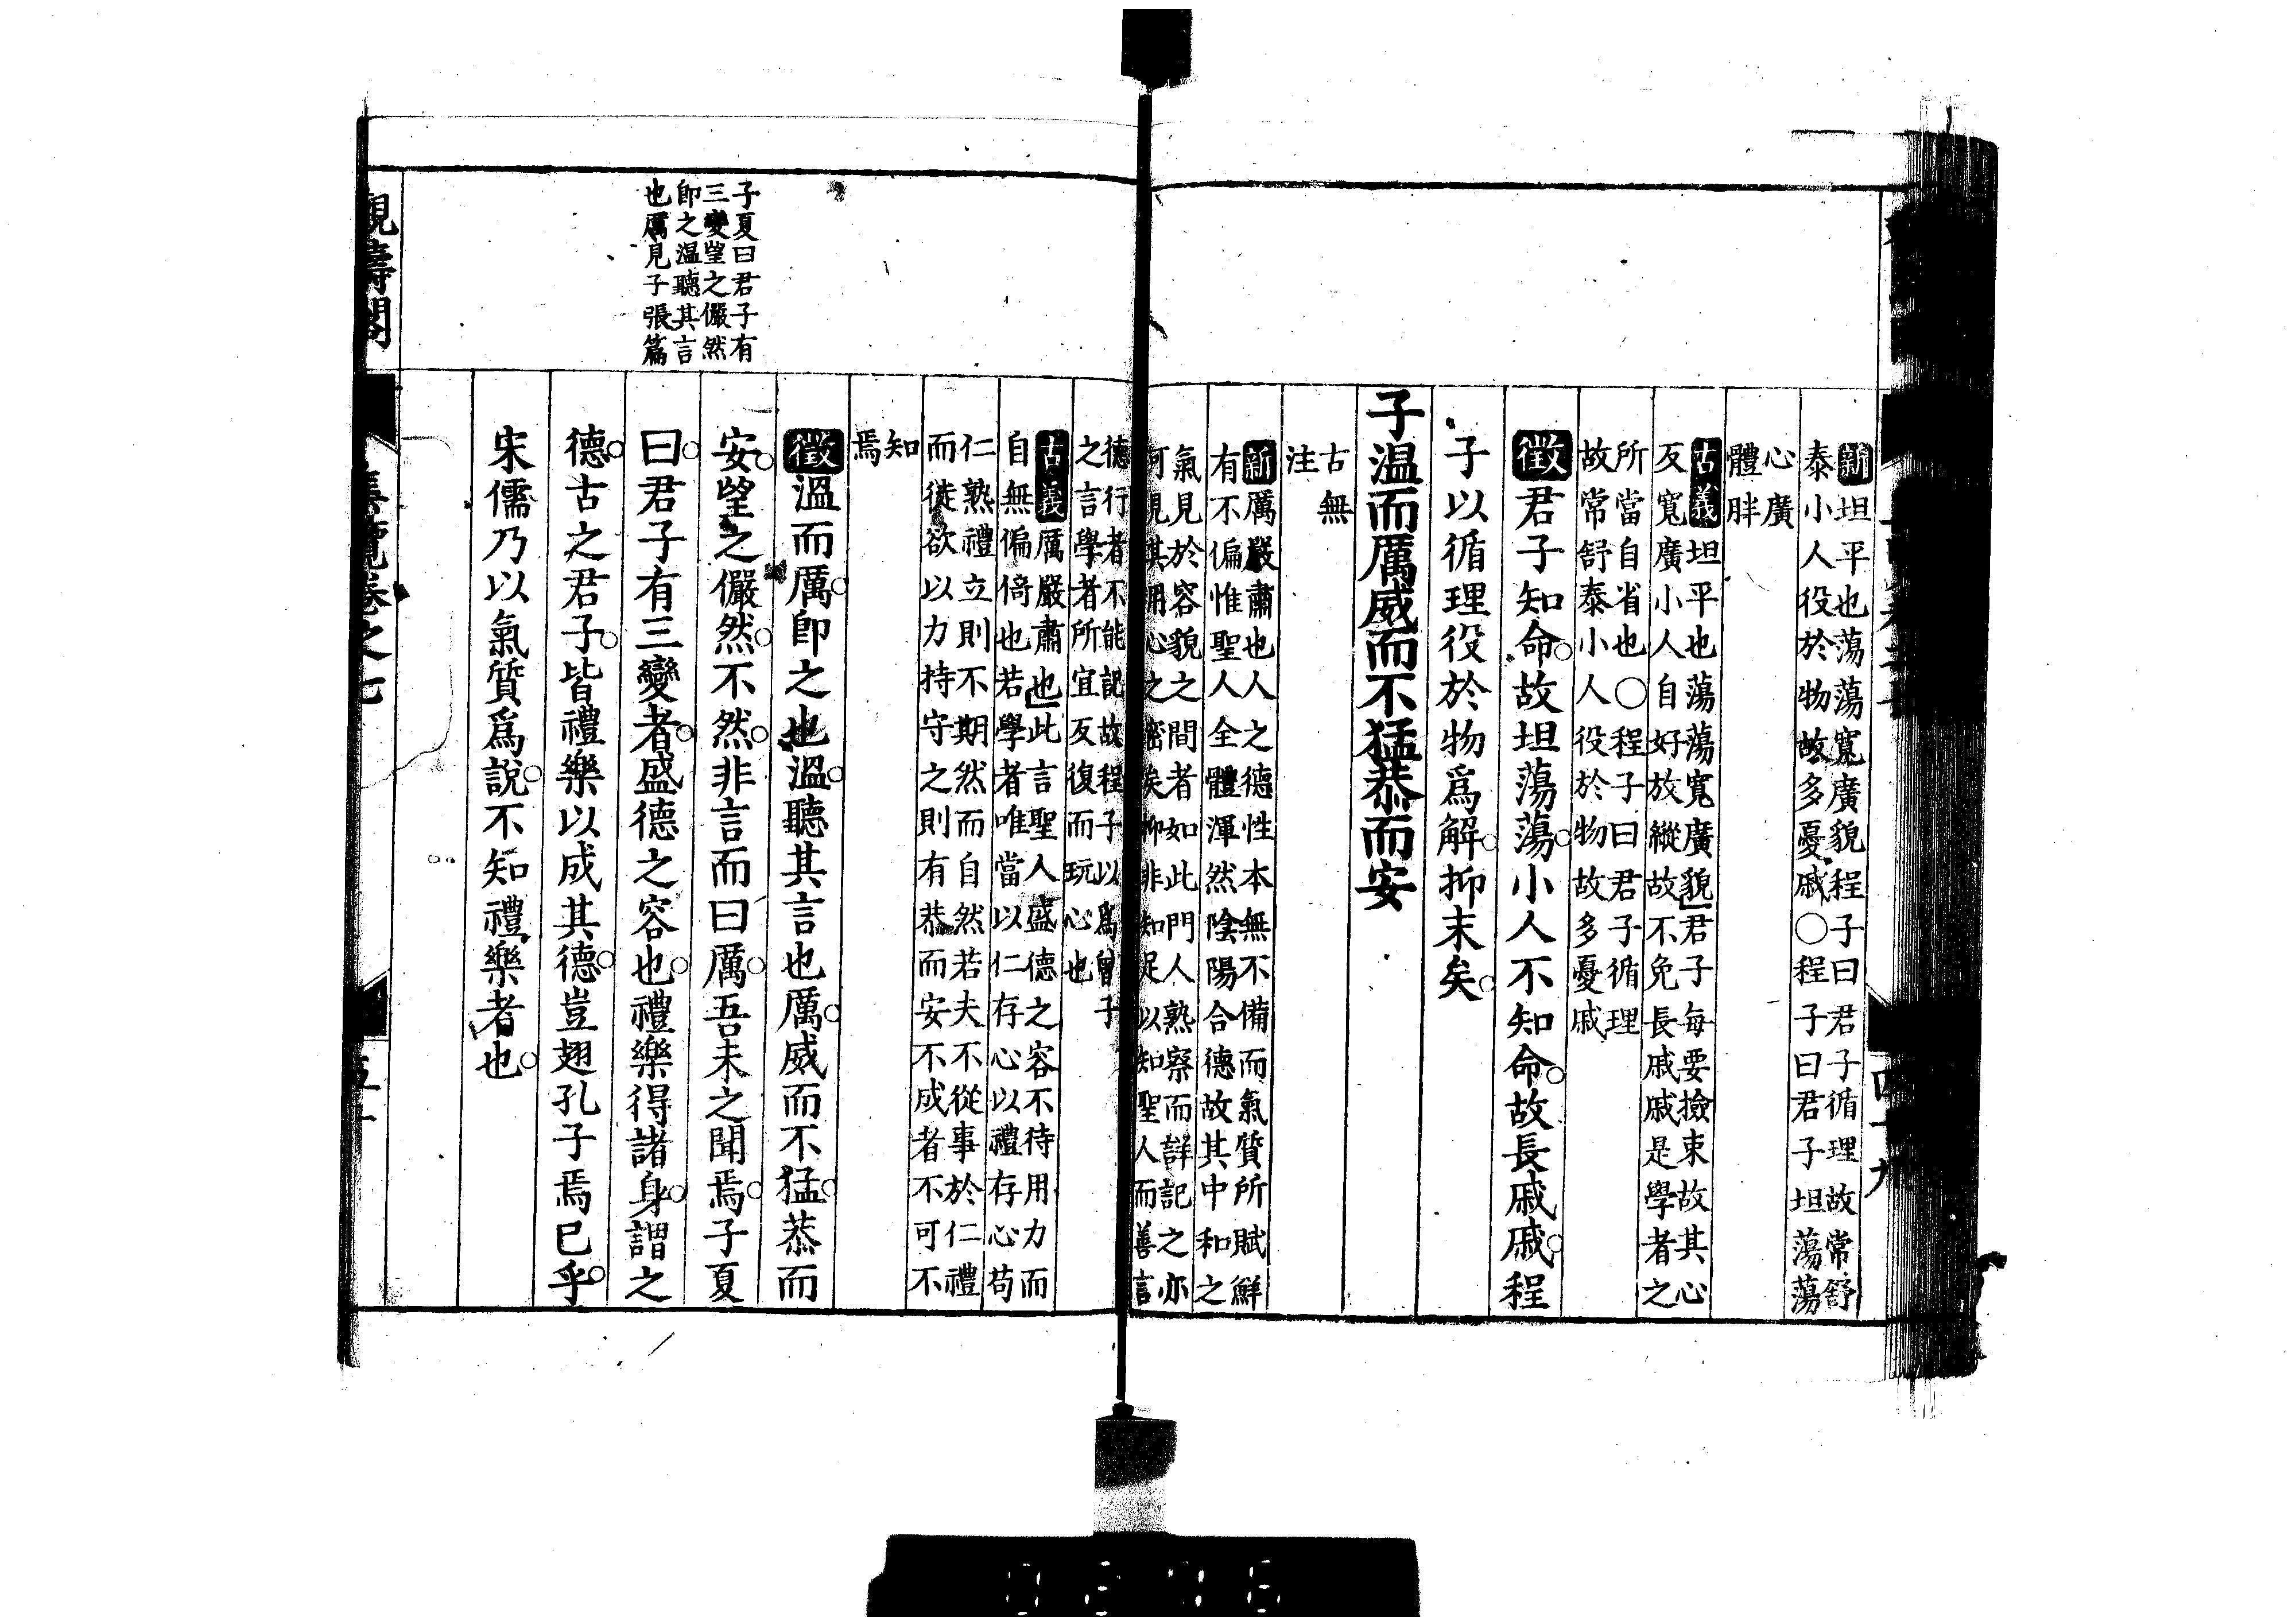 新坦平也蕩蕩寬廣貌程子曰君子循理故常舒
泰小人役於物故多憂戚○程子曰君子坦蕩蕩
心廣
體胖
古義坦平也蕩蕩寬廣貌君子每要撿束故其心
反寬廣小人自好放縱故不免長戚戚是學者之
所當自省也○程子曰君子循理
故常舒泰小人役於物故多憂戚
徵君子知命故坦蕩蕩小人不知命故長戚戚程
子以循理役於物爲解抑末矣
子温而厲威而不猛恭而安
古無
注
新厲嚴肅也人之德性本無不備而氣質所賦鮮
有不偏惟聖人全體渾然陰陽合德故其中和之
氣見於容貌之間者如此門人熟察而詳記之亦
可見其用心之密矣抑非知足以知聖人而善言
德行者不能記故程子以爲曾子
之言學者所宜反復而玩心也
古義厲嚴肅也此言聖人盛德之容不待用力而
自無偏倚也若學者唯當以仁存心以禮存心苟
仁熟禮立則不期然而自然若夫不從事於仁禮
而徒欲以力持守之則有恭而安不成者不可不
知
焉
徵溫而厲卽之也溫聽其言也厲威而不猛恭而
安望之儼然不然非言而曰厲吾未之聞焉子夏
曰君子有三變者盛德之容也禮樂得諸身謂之
德古之君子皆禮樂以成其德豈翅孔子焉已乎
宋儒乃以氣質爲說不知禮樂者也
子夏曰君子有
三變望之儼然
卽之温聽其言
也厲見子張篇
觀濤閣
集覽卷之七